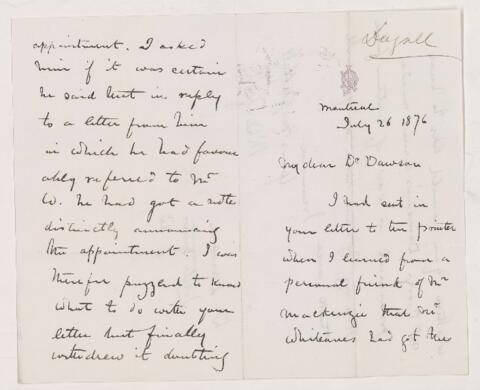 Dugall
Montreal
July 26 1876
My dear Dr Dawson
I had sent in
your letter to the printer
when I learned from a
personal friend of Mr
Mackenzie that Mr
Whiteaves had got the
appointment. I asked
him if it was certain
he said that in reply
to a letter from him
in which he had favour
ably refered to Mr
W. he had got a note
distinctly announcing
the appointment. I was
therefor puzzled to know
what to do with your
letter but finally
withdrew it doubting